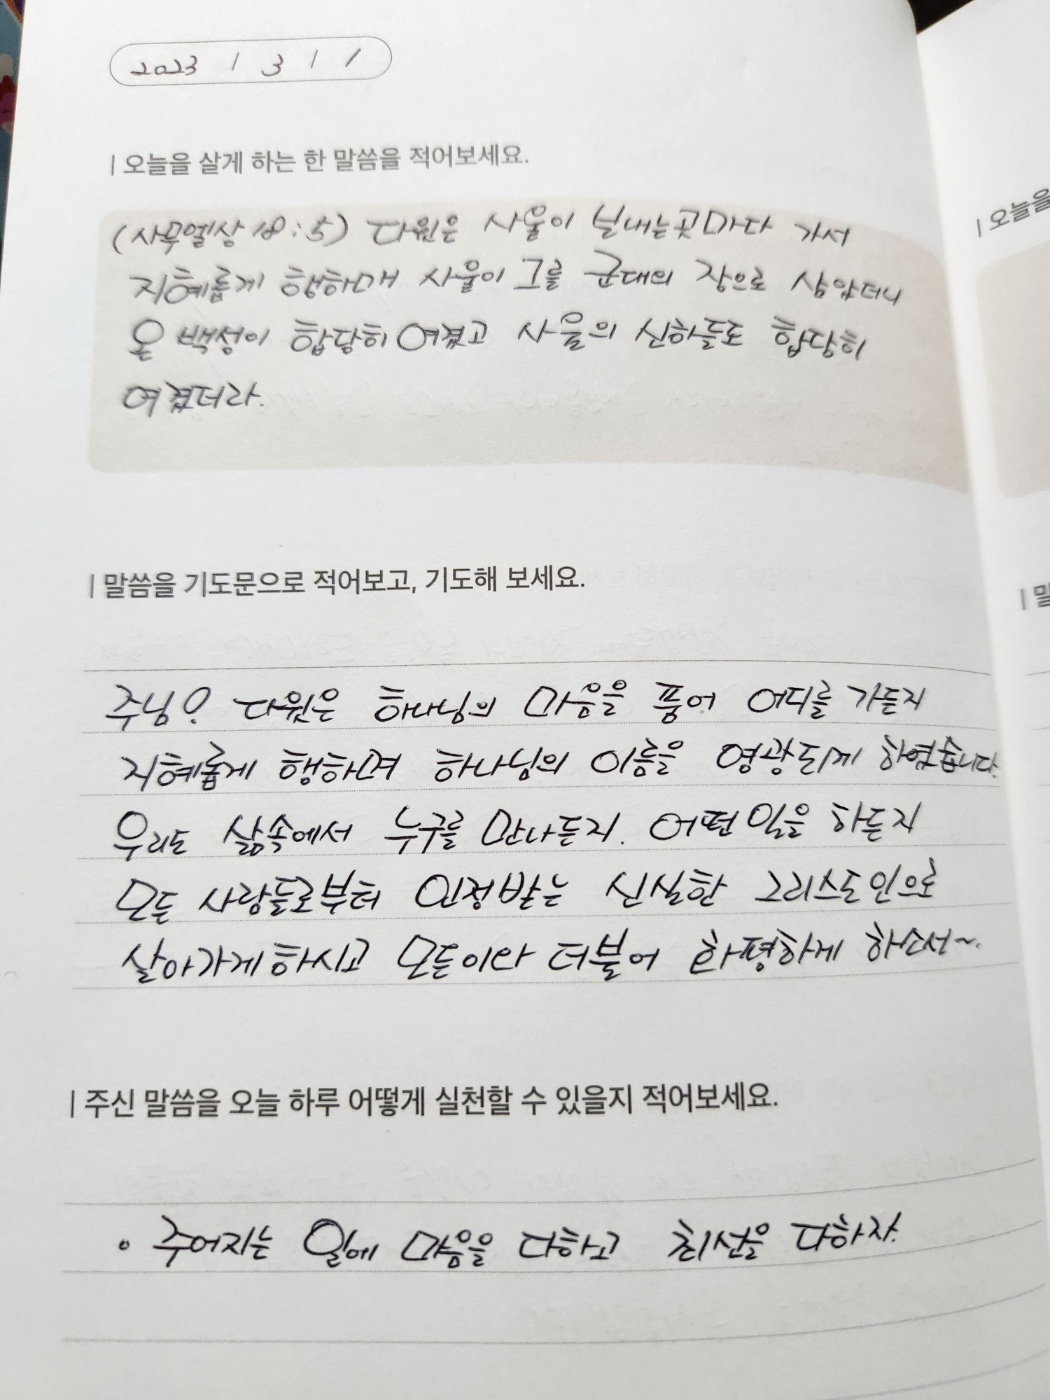 2023 / 3 / 1
| 오늘을 살게 하는 한 말씀을 적어보세요.
(사무엘상 18:5) 다윗은 사울이 보내는곳마다 가서
지혜롭게 행하매 사울이 그를 군대의 장으로 삼았더니
온 백성이 합당히 여겼고 사울의 신하들도 합당히
여겼더라.
| 말씀을 기도문으로 적어보고, 기도해 보세요.
주님! 다윗은 하나님의 마음을 품어 어디를 가든지
지혜롭게 행하며 하나님의 이름을 영광되게 하였습니다.
우리도 삶속에서 누구를 만나든지. 어떤일을 하든지
모든 사람들로부터 인정받는 신실한 그리스도인으로
살아가게하시고 모든이와 더불어 화평하게 하소서~.
| 주신 말씀을 오늘 하루 어떻게 실천할 수 있을지 적어보세요.
• 주어지는 일에 마음을 다하고 최선을 다하자.
| 오늘을
| 말